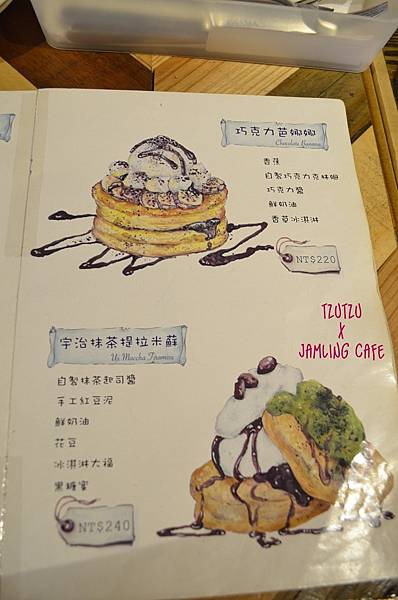 巧克力芭娜娜
Chocolate Banana
香蕉
自製巧克力克林姆
巧克力醬
鮮奶油
香草冰淇淋
NT$220
TZUTZU
X
JAMLING CAFE
宇治抹茶提拉米蘇
Uji Maccha Tiramisu
自製抹茶起司醬
手工紅豆泥
鮮奶油
花豆
冰淇淋大福
黑糖蜜
NT$240